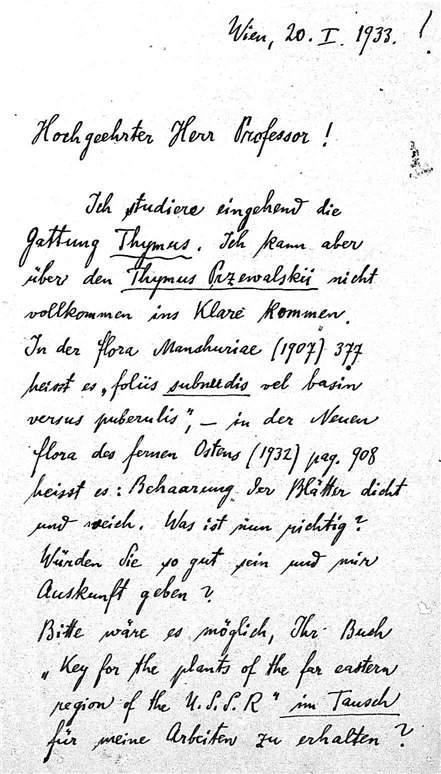 Wien, 20. I. 1933. !
Hochgeehrter Herr Professor !
Ich studiere eingehend die
Gattung Thymus. Ich kann aber
über den Thymus Przewalskii nicht
vollkommen ins Klare kommen.
In der flora Manshuriae (1907) 377
heisst es „foliis subnudis vel basin
versus puberulis", – in der Neuen
flora des fernen Ostens (1932) pag. 908
heisst es: Behaarung der Blätter dicht
und weich. Was ist nun richtig?
Würden Sie so gut sein und mir
Auskunft geben?
Bitte wäre es möglich, Ihr Buch
„Key for the plants of the far eastern
region of the U.S.S.R" im Tausch
für meine Arbeiten zu erhalten?